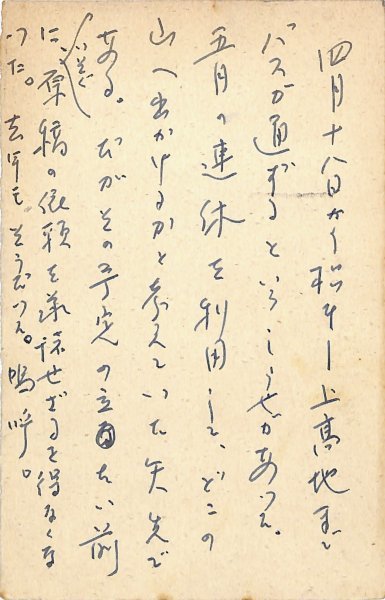 四月十八日から松本ー上高地まで
バスが通ずるというしらせがあつた。
五月の連休を利用して、どこの
山へ出かけるかと考えていた矢先で
ある。だがその予定の立たない前
いそぐ
に、原稿の依頼を承諾せざるを得なくな
つた。去年もそうだつた。嗚呼。